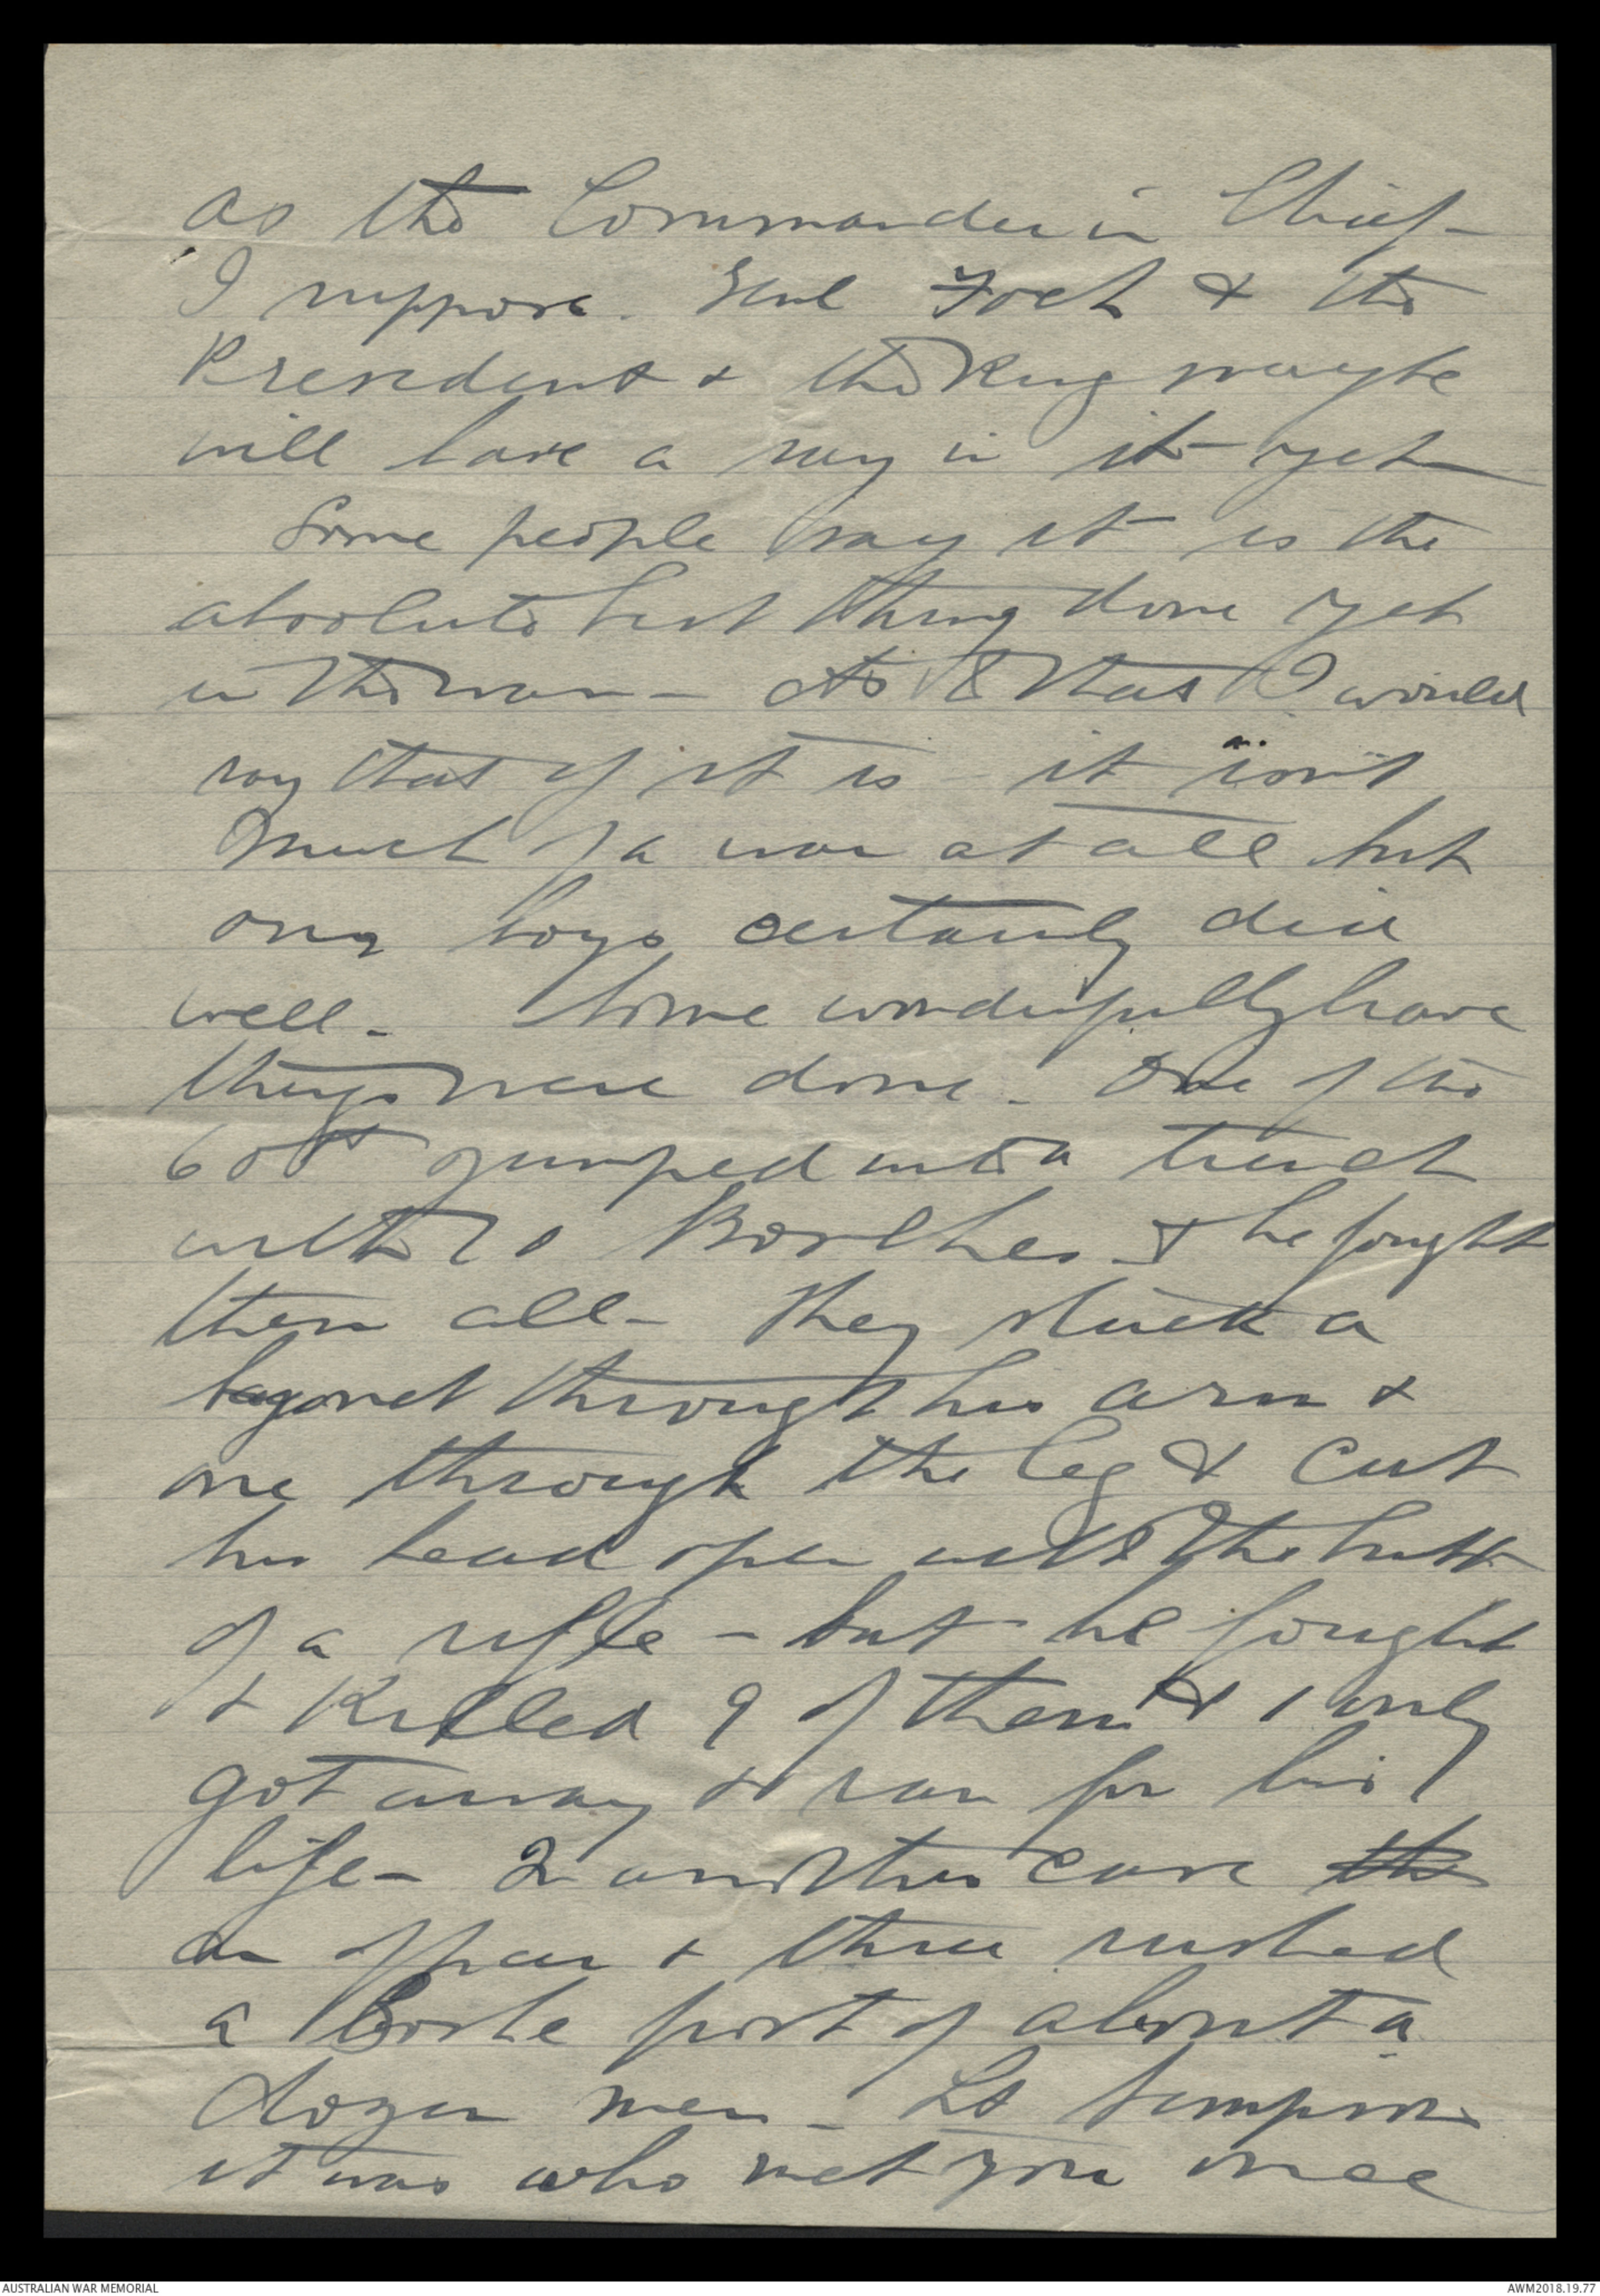 as the Commander in Chief -
I suppose. Genl Foch & the
President & the King maybe
will have a say in it yet
Some people say it is the
absolute best thing done yet
in the war - As to that I would
say that if it is it isn't
much of a war at all but
our boys certainly did
well - Some wonderfully brave
things were done - One of the
60th jumped into a trench
with 10 Bosches & he fought
them all - They stuck a
bayonet through his arm &
one through the leg & cut
his head open with the butt
of a rifle - but he fought
& killed 9 of them & 1 only
got away & ran for his
life - In another case the
an officer & three rushed
a Boche post of about a
dozen men - Lt Simpson
it was who met you once
AUSTRALIAN WAR MEMORIAL
AWM2018.19.77